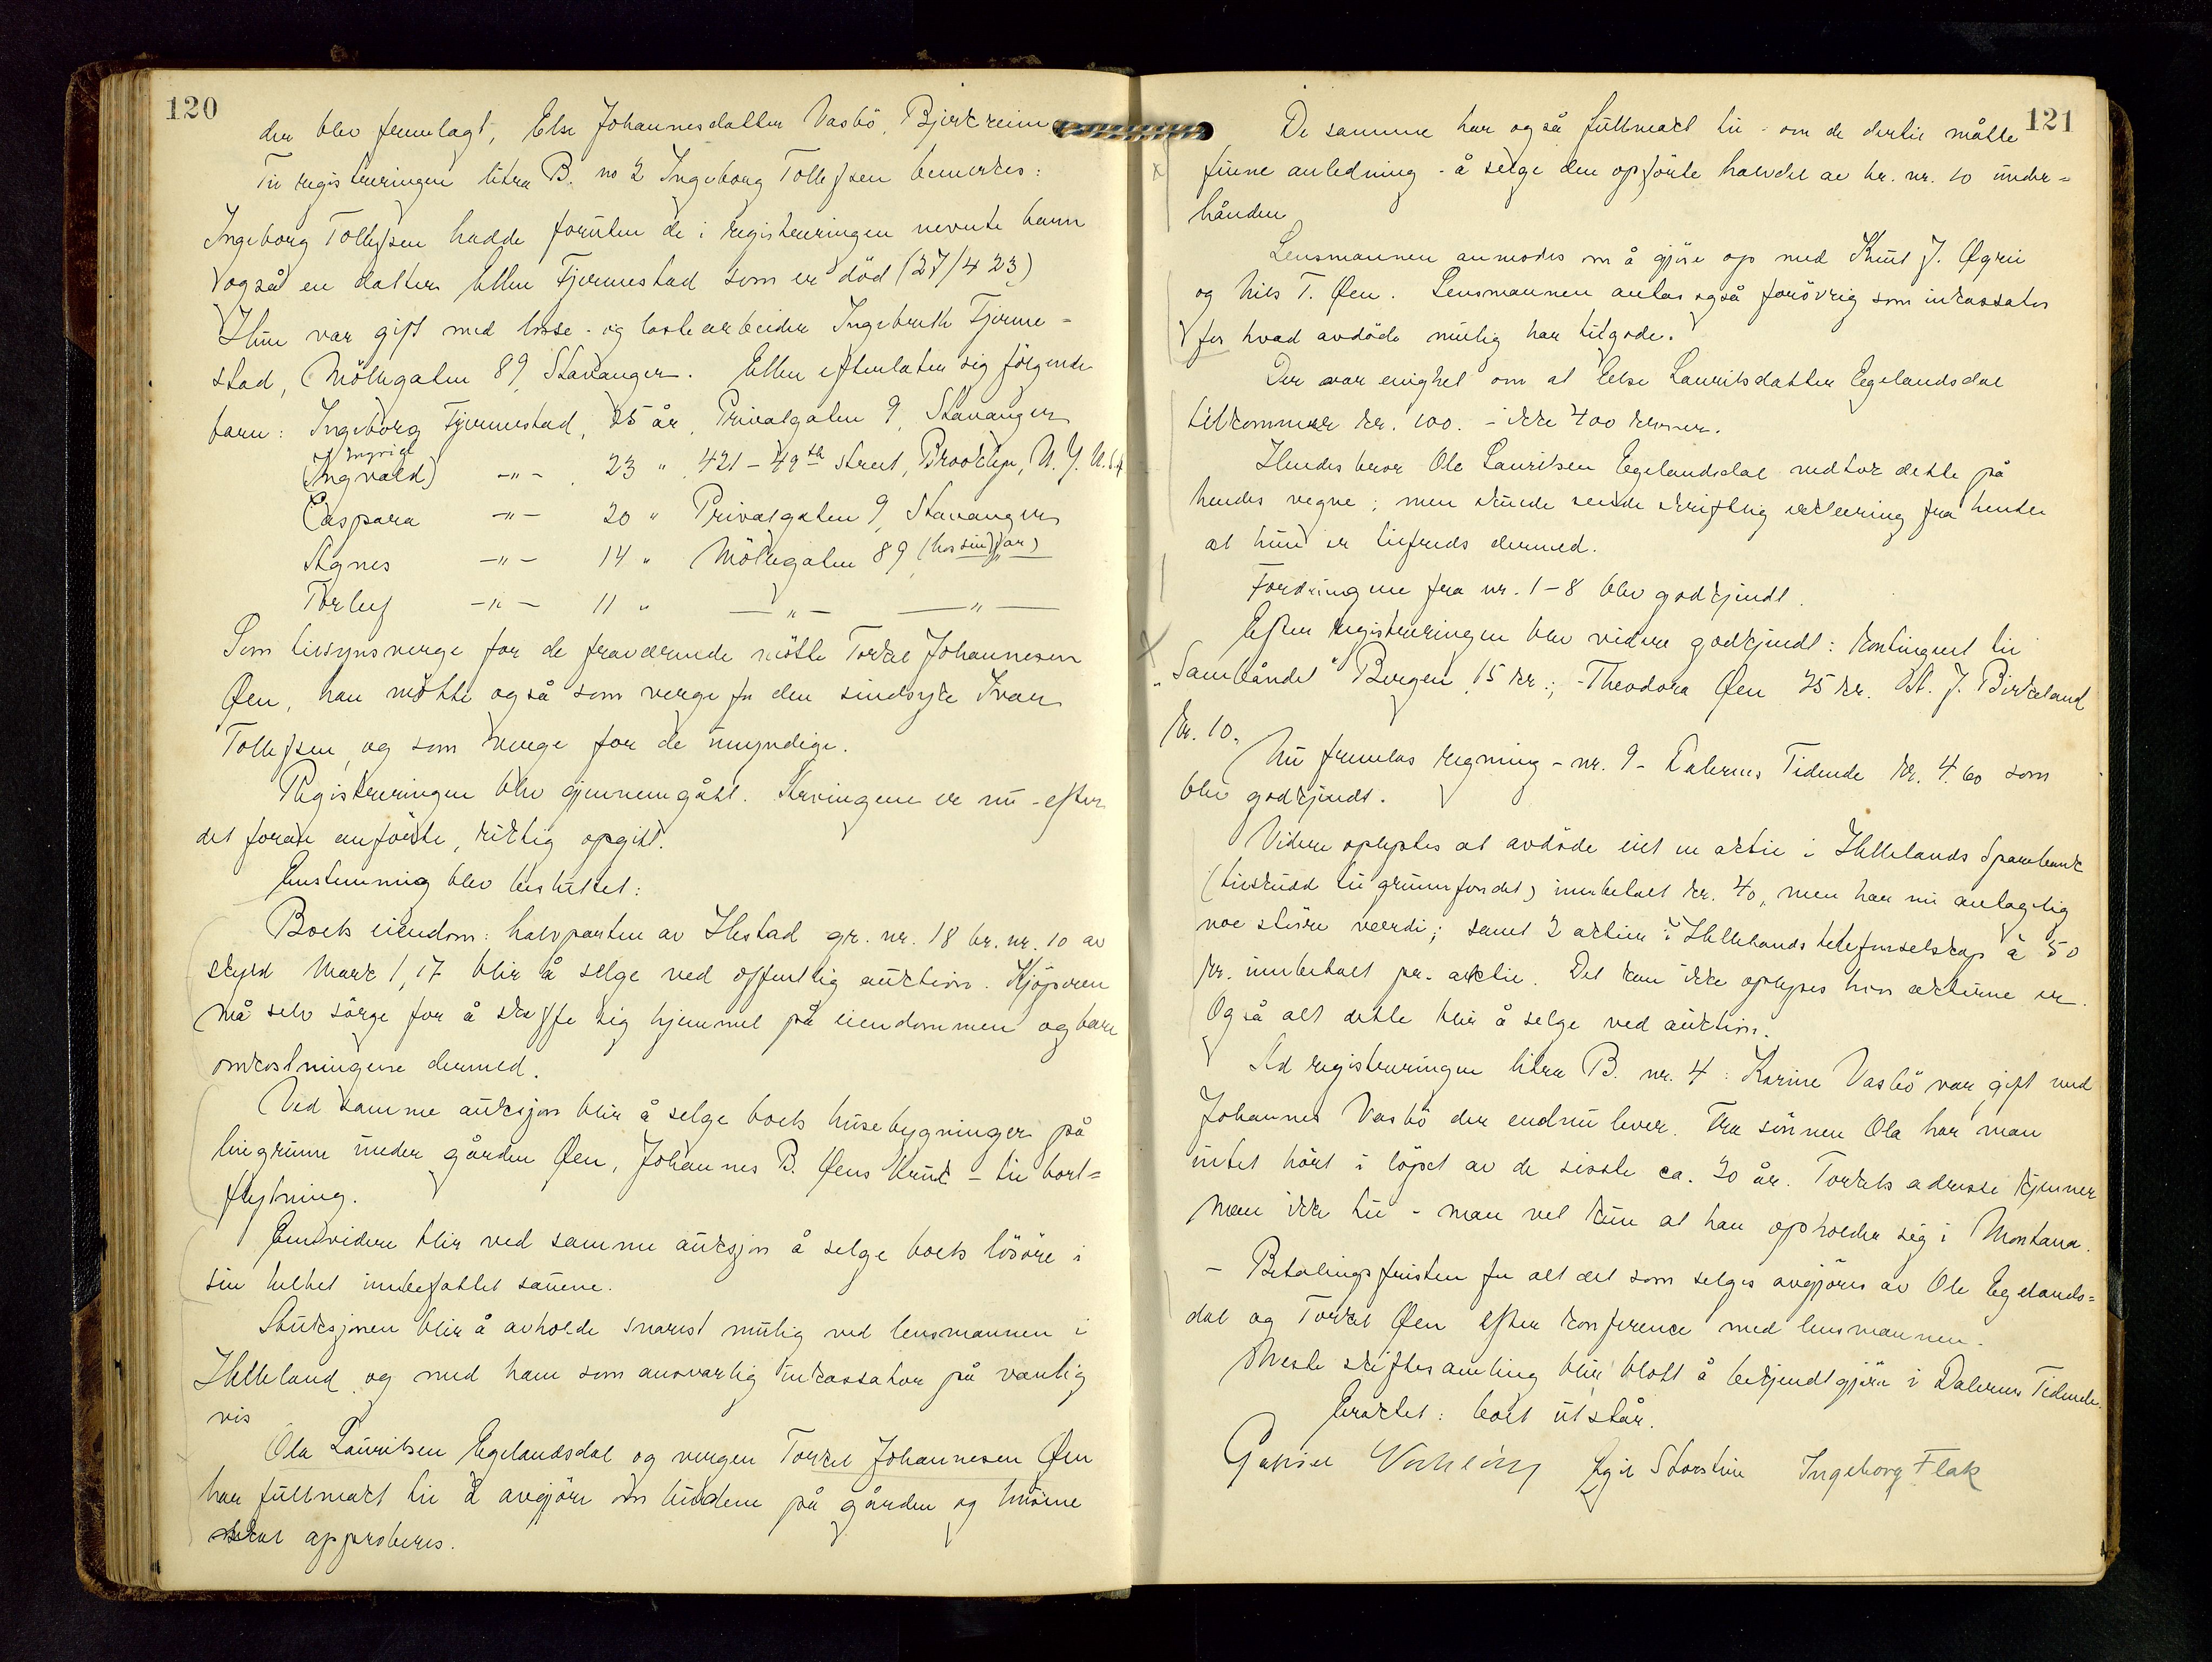 120
der blev fremlagt, Else Johannesdatter Vasbö, Bjerkreim
Til registreringen litra B. no 2 Ingeborg Tollefsen bemerkes:
Ingeborg Tollefsen hadde foruten de i registreringen nevnte barn
også en datter Ellen Fjermestad som er död (27/4 23)
Hun var gift med losse- og lastearbeider Ingebreth Fjerme-
stad, Möllegaten 89, Stavanger. Ellen efterlater sig fölgende
barn: Ingeborg Fjermestad, 25 år, Privatgaten 9, Stavanger
(Ingvald) -"- 23 " 421 - 49th Street, Brooklyn, N. Y. U.S.A
Caspara -"- 20 " Privatgaten 9, Stavanger
Agnes -"- 14 " Möllegaten 89 (hos sin far)
Torleif -"- 11 " -"- -"-
Som tilsynsverge for de fraværende mötte Torkel Johannesen
Øen, han mötte også som verge for den sindsyke Ivar
Tollefsen, og som verge for de umyndige.
Registreringen blev gjennemgått. Arvingene er nu - efter
det foran anförte, riktig opgitt.
Enstemmig blev besluttet:
Boets eiendom: halvparten av Ilestad gr. nr. 18 br. nr. 10 av
skyld Mark 1,17 blir å selge ved offentlig auktion. Kjöperen
må selv sörge for å skaffe sig hjemmel på eiendommen og bære
omkostningene dermed.
Ved samme auksjon blir å selge boets husebygninger på
leiegrunn under gården Øen, Johannes B. Øens bruk - til bort-
flytning.
Emvidere blir ved samme auksjon å selge boets lösöre i
sin helhet innbefattet sauene.
Auksjonen blir å avholde snarest mulig ved lensmannen i
Helleland og med ham som ansvarlig inkassator på vanlig
vis
Ola Lauritsen Egelandsdal og vergen Torkel Johannesen Øen
har fullmakt til å avgjöre om budene på gården og husene
skal approberes.
121
De samme har også fullmakt til - om de dertil måtte
finne anledning - å selge den opförte halvdel av br. nr. 10 under-
hånden
Lensmannen anmodes om å gjöre op med Knut J. Øgrei
og Nils T. Øen. Lensmannen antas også forövrig som inkassator
for hvad avdöde mulig har tilgode.
Der var enighet om at Else Lauritsdatter Egelandsdal
tilkommer kr. 100. - ikke 400 kroner.
Hendes bror Ole Lauritsen Egelandsdal vedtok dette på
hendes vegne; men skulde sende skriftlig erklæring fra hende
at hun er tilfreds dermed.
Fordringene fra nr. 1-8 blev godkjendt.
Efter registreringen blev videre godkjendt: kontingent til
"Sambåndet" Bergen 15 kr.; - Theodora Øen 75 kr. J. Birkeland
kr. 10.
Nu fremlas regning - nr. 9 - Dalernes Tidende kr. 4.60 som
blev godkjendt.
Videre oplystes at avdöde eiet en aktie i Hellelands Sparebank
(tilskudd til grunnfondet) innbetalt kr. 40, men har nu antagelig
noe större værdi; samt 2 aktier i Hellelands telefonselskap à 50
kr. innbetalt pr. aktie. Det kan ikke oplyses hvor aktiene er.
Også alt dette blir å selge ved auktion.
Ad registreringen litra B. nr. 4: Karine Vasbö var gift med
Johannes Vasbö der endnu lever. Fra sönnen Ola har man
intet hört i löpet av de sisste ca. 20 år. Torkels adresse kjenner
man ikke til - man vet kun at han opholder sig i Montana.
- Betalingsfristen for alt det som selges avgjöres av Ole Egelands-
dal og Torkel Øen efter konference med lensmannen.
Neste skiftesamling blir blott å bekjendtgjöre i Dalernes Tidende.
Eraktet: boet utstår.
Gabriel Egil Storstein Ingeborg Flak